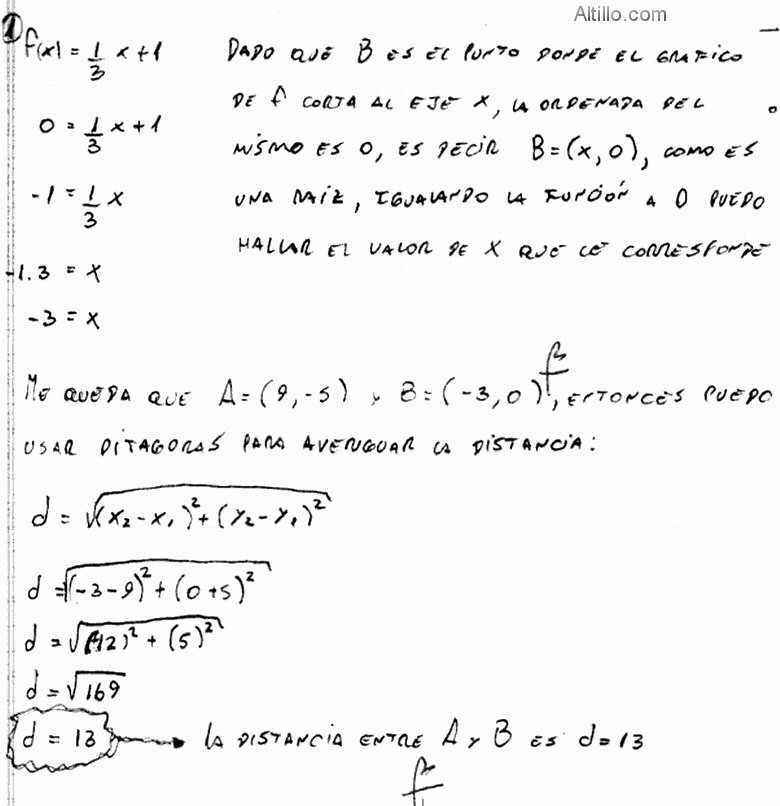 Altillo.com
1
f(x) = 1/3 x + 1
DADO QUE B ES EL PUNTO DONDE EL GRAFICO
DE f CORTA AL EJE X, LA ORDENADA DEL
0 = 1/3 x + 1
MISMO ES 0, ES DECIR B = (x, 0), COMO ES
-1 = 1/3 x
UNA RAIZ, IGUALANDO LA FUNCIÓN A 0 PUEDO
HALLAR EL VALOR DE X QUE LE CORRESPONDE
-1.3 = x
-3 = x
ME QUEDA QUE A = (9, -5) y B = (-3, 0), ENTONCES PUEDO
USAR PITAGORAS PARA AVERIGUAR LA DISTANCIA:
d = √(x₂ - x₁)² + (y₂ - y₁)²
d = √(-3 - 9)² + (0 + 5)²
d = √(-12)² + (5)²
d = √169
d = 13 → LA DISTANCIA ENTRE A y B ES d = 13